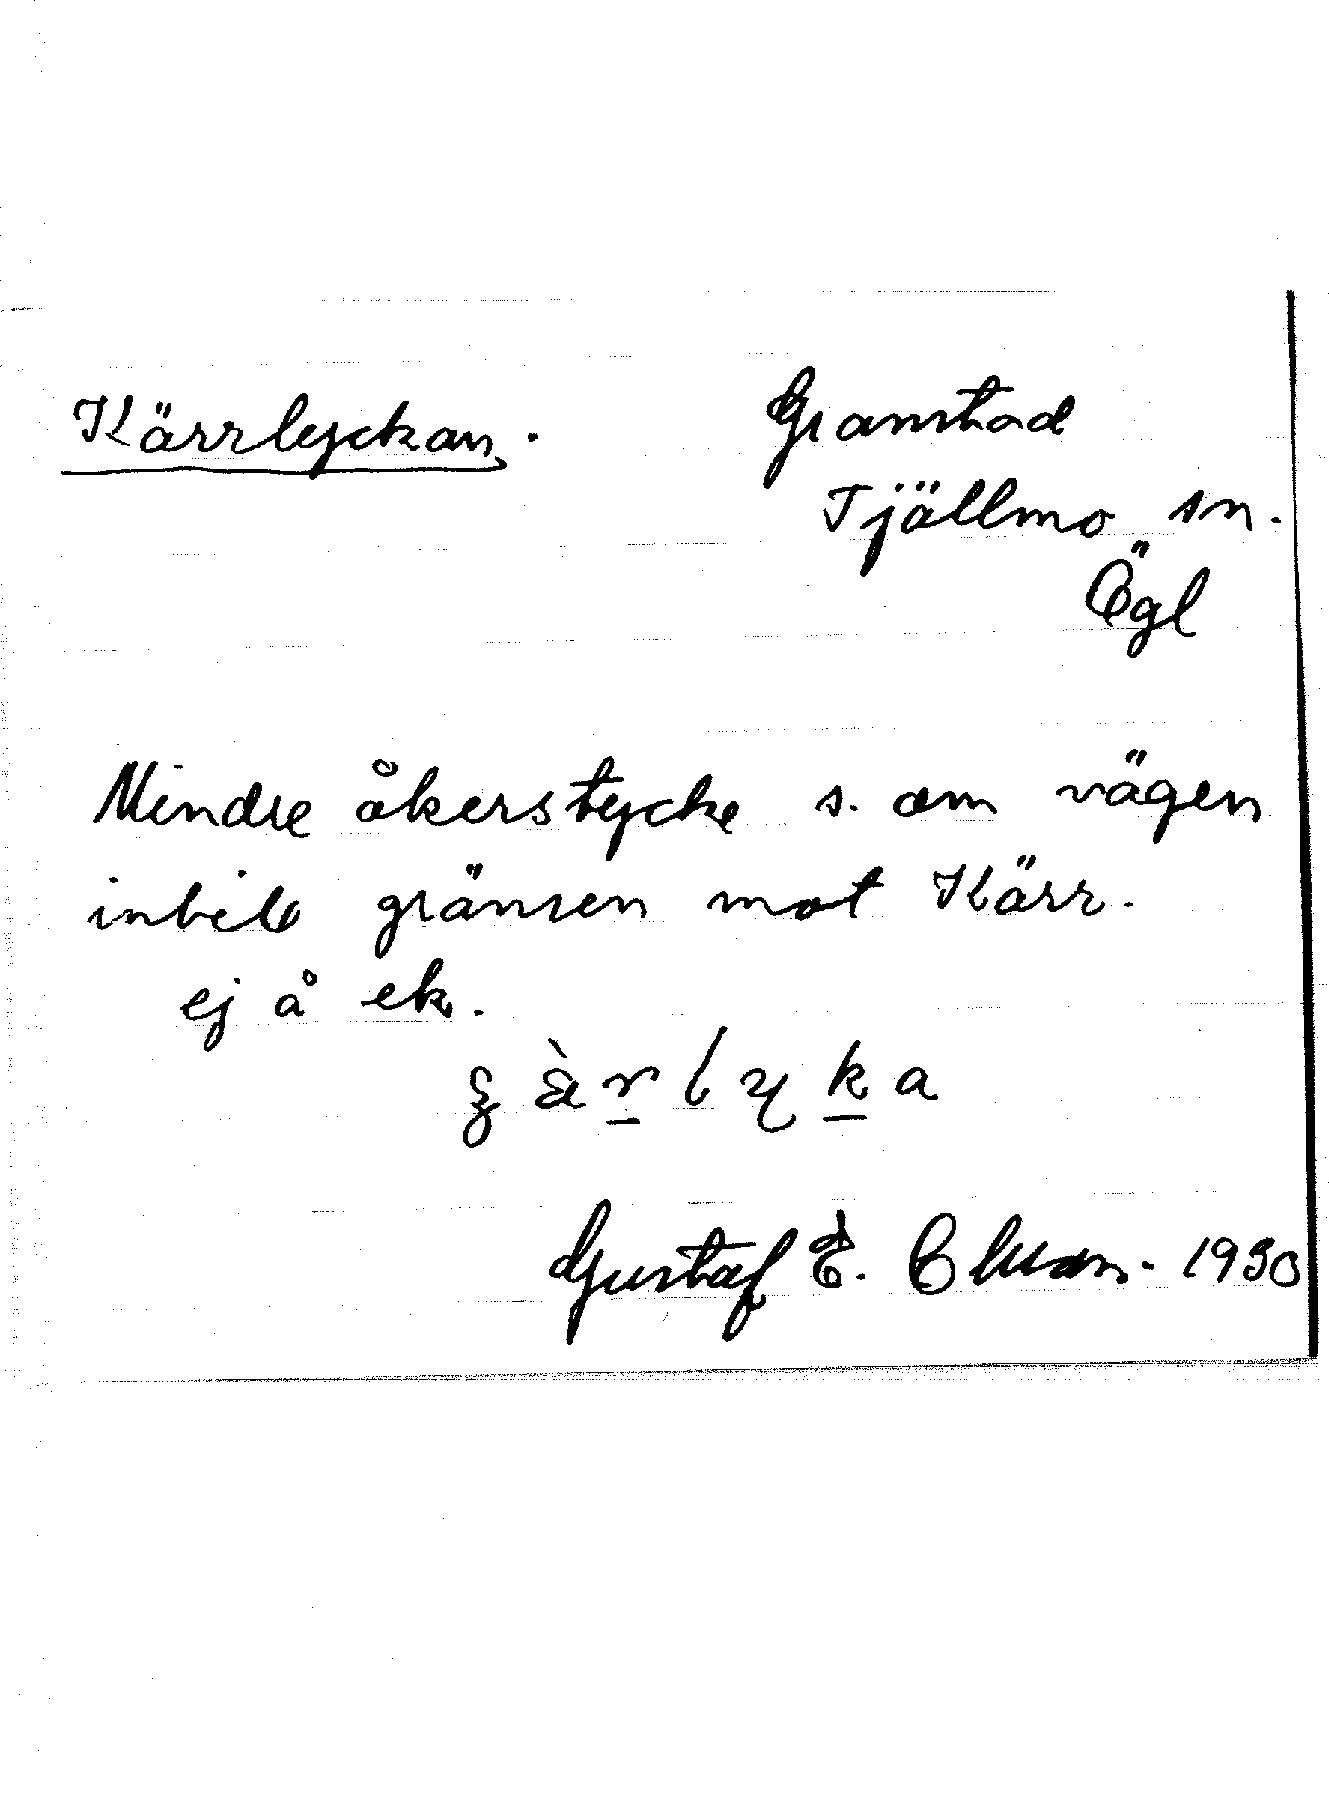 Kärrlyckan.
Granstad
Tjällmo sn.
Ögl
Mindre åkerstycke s. om vägen
intill gränsen mot Kärr.
ej å ek.
Gustaf E. 1930